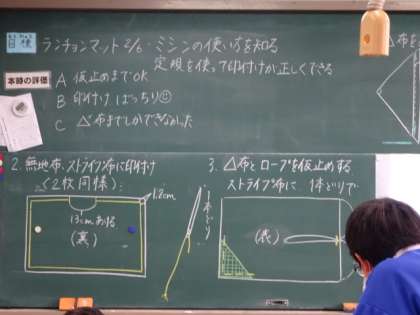 目標
ランチョンマット 2/6・ミシンの使い方を知る
定規を使って印付けが正しくできる
本時の評価
A 仮止めまでOK
B 印付け ばっちり☺
C △布までしかできなかった
△布を
2. 無地布、ストライプ布に印付け
(2枚同様)
1.2cm
13cmあける
(裏)
1本どり
3. △布とロープを仮止めする
ストライプ布に 1本どりで
(表)